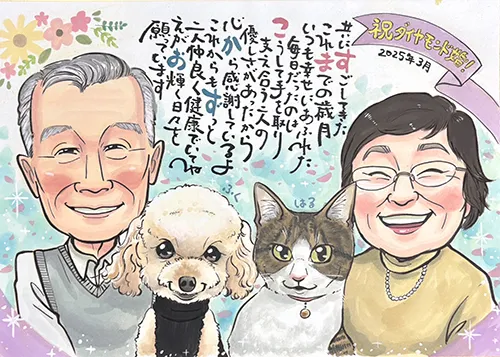 祝ダイヤモンド婚!
2025年3月
共にすごしてきた
これまでの歳月
いつも幸せにあふれた
毎日だったのは
こうして手を取り
支え合う二人の
優しさがあったから
心から感謝しているよ
これからもずっと
二人仲良く健康でいてね
えがお輝く日々を
願っています
ふく
はる